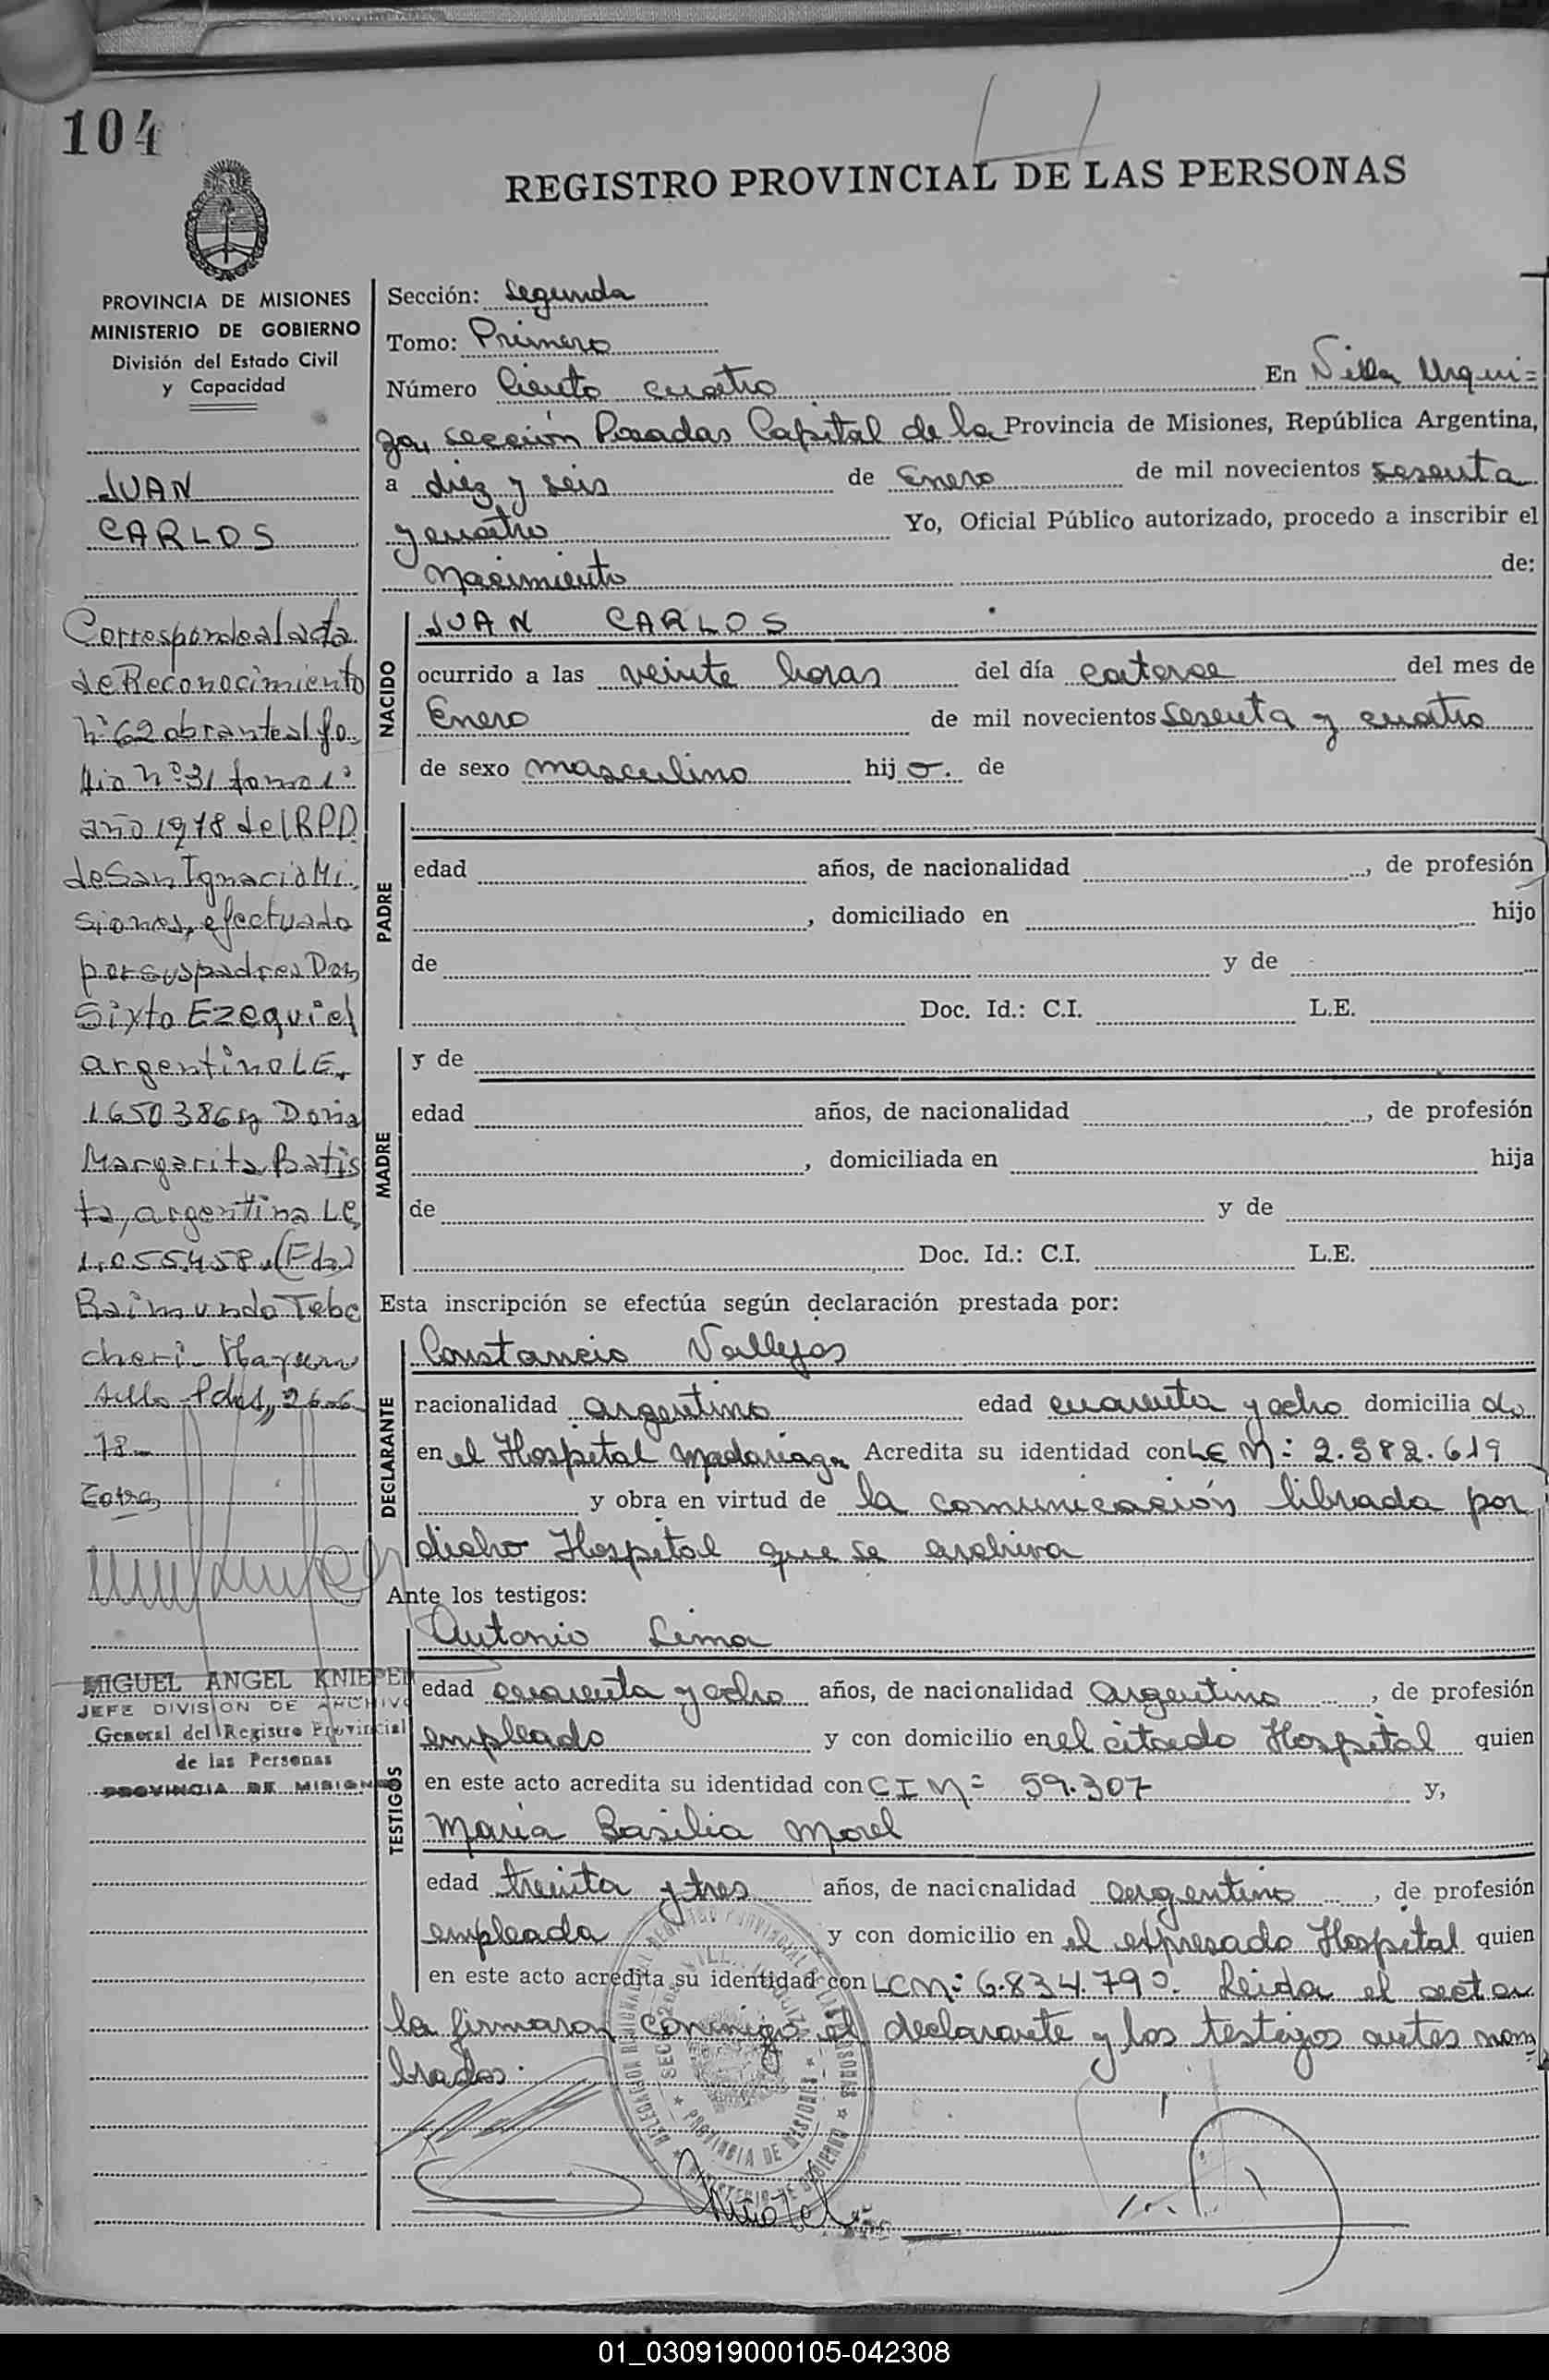 104
REGISTRO PROVINCIAL DE LAS PERSONAS
PROVINCIA DE MISIONES
MINISTERIO DE GOBIERNO
División del Estado Civil
y Capacidad
JUAN
CARLOS
Corresponde al acta
de Reconocimiento
Nº 62 obrante al fo
lio Nº 31 tomo 1º
año 1978 del RPP
de San Ignacio Mi
siones, efectuado
por sus padres Don
Sixto Ezequiel
argentino LE.
1650386 y Doña
Margarita Batis
ta, argentina LC
1.055.458. (Fdo)
Raimundo Tebe
cheri
Pdas, 26-6
78-
MIGUEL ANGEL KNIEPER
JEFE DIVISION DE ARCHIVO
General del Registro Provincial
de las Personas
PROVINCIA DE MISIONES
Sección: Segunda
Tomo: Primero
Número Ciento cuatro En Villa Urqui=
za, sección Posadas Capital de la Provincia de Misiones, República Argentina,
a diez y seis de Enero de mil novecientos sesenta
y cuatro Yo, Oficial Público autorizado, procedo a inscribir el
Nacimiento de:
NACIDO
JUAN CARLOS
ocurrido a las veinte horas del día catorce del mes de
Enero de mil novecientos sesenta y cuatro
de sexo masculino hijo. de
PADRE
edad años, de nacionalidad , de profesión
, domiciliado en hijo
de y de
Doc. Id.: C.I. L.E.
MADRE
y de
edad años, de nacionalidad , de profesión
, domiciliada en hija
de y de
Doc. Id.: C.I. L.E.
Esta inscripción se efectúa según declaración prestada por:
DECLARANTE
Constancio Vallejos
nacionalidad argentino edad cuarenta y ocho domicilia do
en el Hospital Madariaga Acredita su identidad con LE Nº: 2.382.619
y obra en virtud de la comunicación librada por
dicho Hospital que se archiva
Ante los testigos:
TESTIGOS
Antonio Lima
edad cuarenta y ocho años, de nacionalidad argentino , de profesión
empleado y con domicilio en el citado Hospital quien
en este acto acredita su identidad con CI Nº 59.307 y,
María Basilia Morel
edad treinta y tres años, de nacionalidad argentina , de profesión
empleada y con domicilio en el expresado Hospital quien
en este acto acredita su identidad con LC Nº: 6.834.790. Leida el acta
la firmaron conmigo el declarante y los testigos antes nom
brados.
PROVINCIA DE MISIONES
01_030919000105-042308